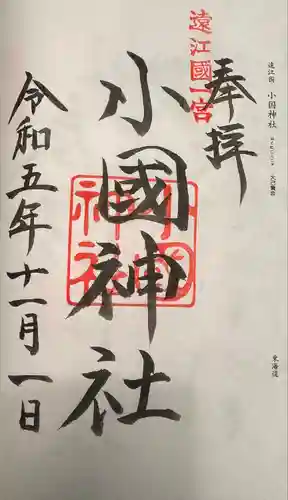 遠江国 小国神社
東海道
奉拝
遠江國一宮
小國神社
小國神社
令和五年十一月一日